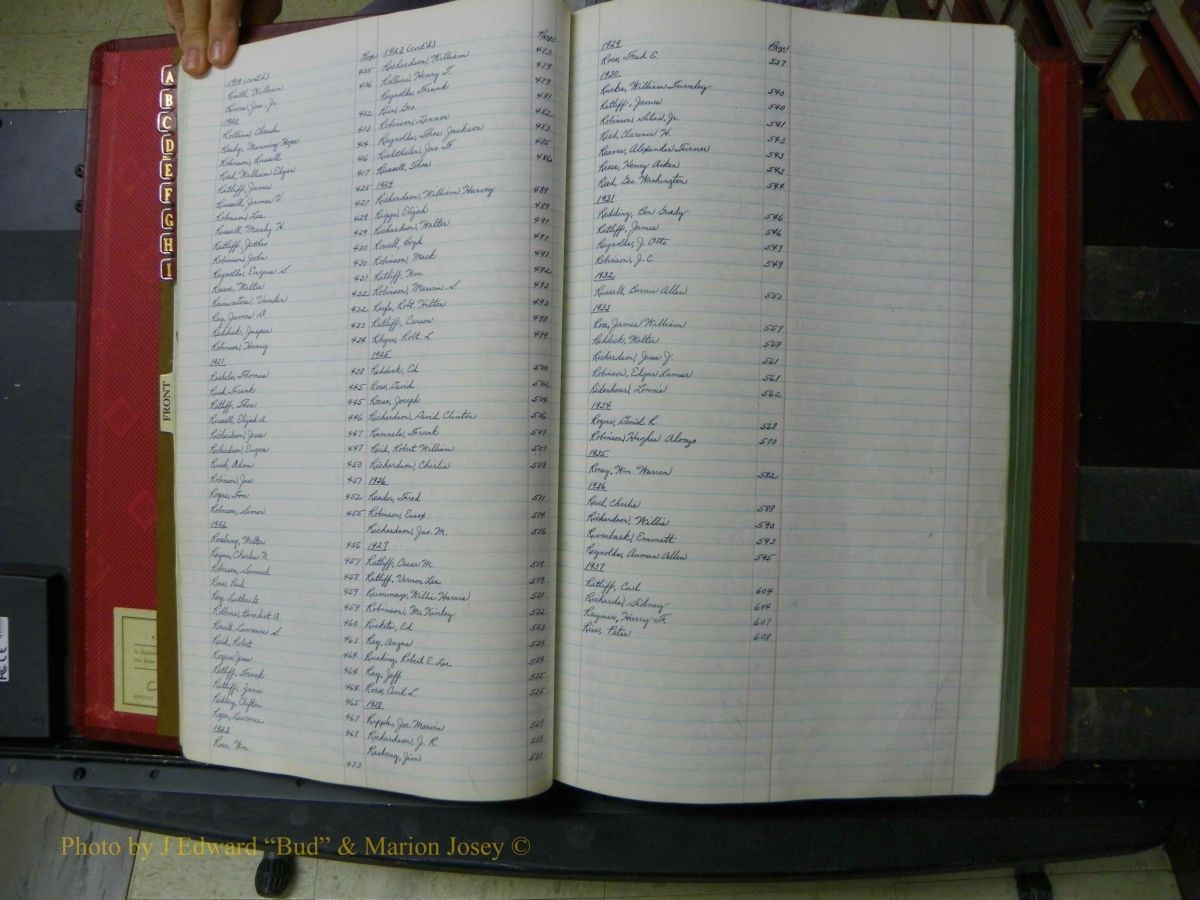 A
B
C
D
E
F
G
H
I
FRONT
1919 (cont'd)
1920
Rollins, Claude
Robinson, Russell
Reid, William Edgar
Ratliff, James
Russell, James
Robinson, Lee
Russell, Manly H.
Ratliff, Jethro
Robinson, John
Reynolds, Eugene S.
Roscoe, Walter
Rainwaters, Vander
Ray, James
Reddick, Jasper
Robinson, Henry
1921
Thomas
Rush, Frank
Ratliff, Thos.
Russell, Elijah A.
Richardson, Jesse
Richardson, Eugene
Rush, Adam
Robinson, Jas.
Rogers, Tom
Robinson, Simon
1922
Rosebury, Walter
Rogers, Charles N.
Robinson, Samuel
Ross, Paul
Ray, Luther G.
Robbins, Benedict A.
Rowell, Lawrence S.
Reid, Robert
Rogers, Jesse
Ratliff, Frank
Ratliff, Zane
Clifton
Roper, Lawrence
1923
Ross, Wm.
Page
405
406
412
413
414
416
417
425
427
428
429
430
430
431
432
432
433
434
438
445
445
446
447
447
450
451
452
455
456
457
458
459
459
460
463
464
464
464
465
467
467
473
1923 (cont'd) Page
Richardson, William 473
Rollins, Henry T. 479
Reynolds, Frank 479
Rice, Geo. 481
Robinson, Lennon 482
Reynolds, Thos. Jackson 483
Jno. F. 485
Russell, Thos. 486
1924
Richardson, William Harvey 489
Riggs, Elijah 489
Richardson, Walter 491
Rowell, Boyd 491
Robinson, Mack 491
Ratliff, Wm. 492
Robinson, Marvin S. 493
Royle, Robt. Hilton 493
Ratliff, Carson 498
Rhyne, Robt. L. 499
1925
Reddick, Ed 500
Ross, David 502
Rouse, Joseph 504
Richardson, David Clinton 506
Runnels, Frank 507
Reid, Robert William 507
Richardson, Charlie 508
1926
Reader, Fred 511
Robinson, Essex 514
Richardson, Jno. M. 516
1927
Ratliff, Oscar M. 518
Ratliff, Vernon Lee 519
Rummage, Willie Harris 521
Robinson, McKinley 522
Ricketts, Ed 523
Ray, Angus 524
Rushing, Robert E. Lee 524
Ray, Jeff 525
Ross, Cecil L. 525
1928
Rippler, Joe Marvin 527
Richardson, J. R. 528
Rasberry, Jim 531
1929 Page
Ross, Fred C. 537
1930
Rucker, William Turnley 540
Ratliff, James 540
Robinson, Silas, Jr. 541
Reid, Clarence H. 542
Reaves, Alexander Turner 543
Reese, Henry Aiken 543
Reed, Geo. Washington 544
1931
Redding, Ben Grady 546
Ratliff, James 546
Reynolds, J. Otto 547
Robinson, J. C. 549
1932
Russell, Burnie Allen 553
1933
Ross, James William 557
Reddick, Walter 558
Richardson, Jesse J. 561
Robinson, Edgar Lamar 561
Ridenhour, Lonnie 562
1934
Rogers, Daniel R. 568
Robinson, Hughes Alonzo 570
1935
Roney, Wm. Warren 582
1936
Charlie 588
Richardson, Willie 590
Rivenbark, Emmett 593
Reynolds, Auman Allen 595
1937
Ratliff, Carl 604
Richards, Sidney 604
Raymer, Harry F. 607
Rice, Peter 608
Photo by J Edward “Bud” & Marion Josey ©